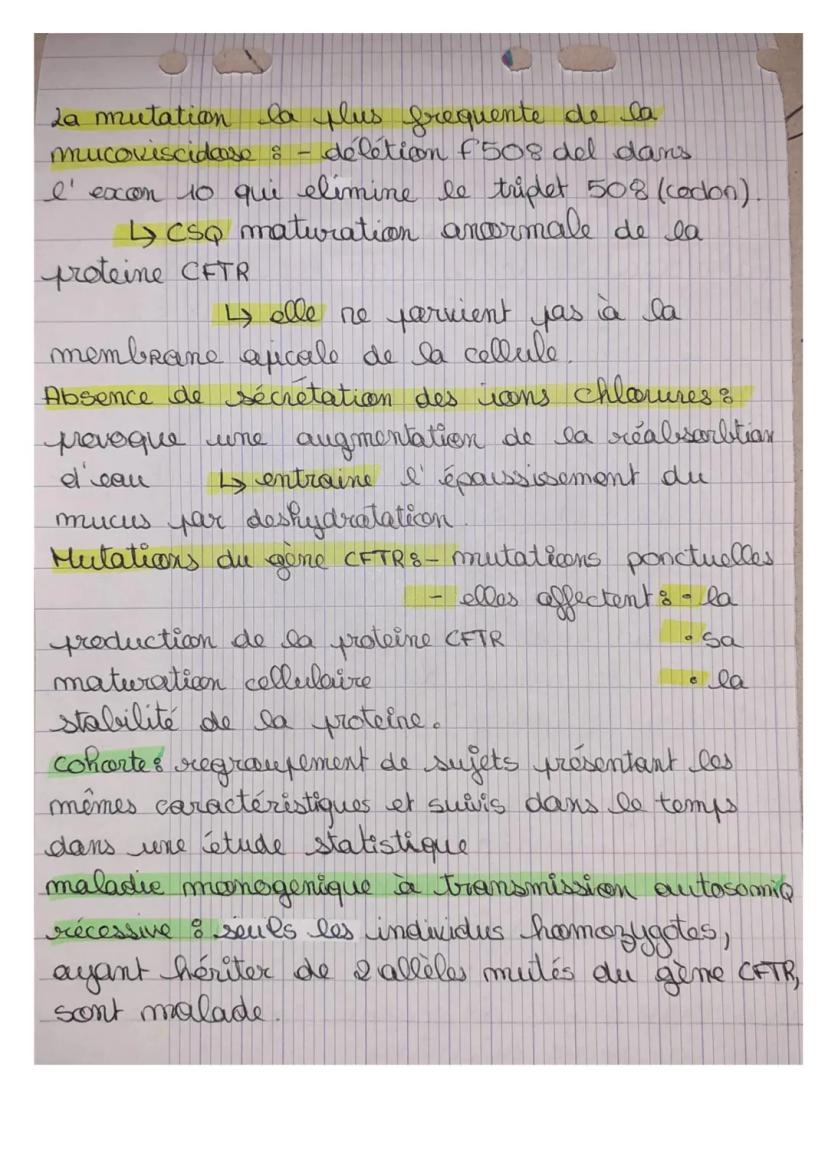 La mutation la plus frequente de la
mucoviscidose : - délétion f508 del dans
l'exon 10 qui elimine le triplet 508 (codon).
↳ CSQ maturation anormale de la
proteine CFTR
↳ elle ne parvient pas à la
membrane apicale de la cellule.
Absence de sécrétation des ions chlorures :
provoque une augmentation de la réalsorbtion
d'eau ↳ entraine l'épaississement du
mucus par deshydratation.
Mutations du gène CFTR : - mutations ponctuelles
- elles affectent : • la
production de la proteine CFTR • sa
maturation cellulaire • la
stabilité de la proteine.
cohorte : regroupement de sujets présentant les
mêmes caractéristiques et suivis dans le temps
dans une étude statistique
maladie monogenique à transmission autosomiq
récessive : seuls les individus homozygotes,
ayant hériter de 2 allèles mutés du gène CFTR,
sont malade.